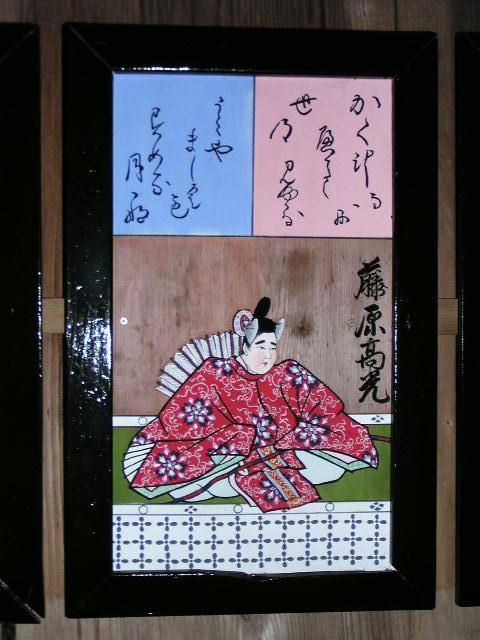 かく計り
へかたく
見ゆる
世の
うらや
ましくも
すめる
月可な
藤原高光